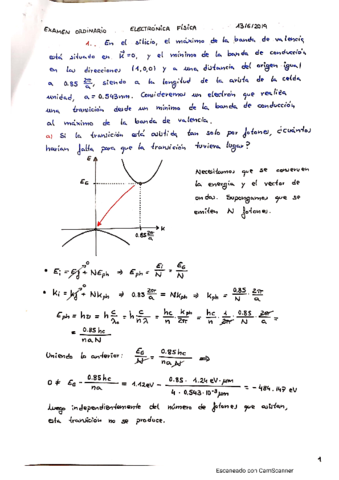 EXAMEN ORDINARIO ELECTRÓNICA FÍSICA 13/6/2019
1. En el silicio, el máximo de la banda de valencia
está situado en k⃗=0, y el mínimo de la banda de conducción
en las direcciones (1,0,0) y a una distancia del origen igual
a 0.85 2π/a, siendo a la longitud de la arista de la celda
unidad, a = 0.543nm. Consideremos un electrón que realiza
una transición desde un mínimo de la banda de conducción
al máximo de la banda de valencia.
a) Si la transición está asistida tan solo por fotones, ¿cuántos
harían falta para que la transición tuviera lugar?
E
EG
0.85 2π/a
k
Necesitamos que se conserven
la energía y el vector de
ondas. Supongamos que se
emiten N fotones.
• Ei = Ef + NEph ⇒ Eph = Ei/N = EG/N
• ki = kf + Nkph ⇒ 0.85 2π/a = Nkph ⇒ kph = 0.85/N · 2π/a
Eph = hν = h c/λ0 = h c/nλ = hc/n · kph/2π = hc/n · 1/2π · 0.85/N · 2π/a =
= 0.85hc/naN
Uniendo lo anterior: EG/N = 0.85hc/naN ⇒
0 ≠ EG - 0.85hc/na = 1.12eV - 0.85 · 1.24 eV·μm / 4 · 0.543·10⁻³ μm = -484.147 eV
Luego independientemente del número de fotones que asistan,
esta transición no se produce.
1
Escaneado con CamScanner